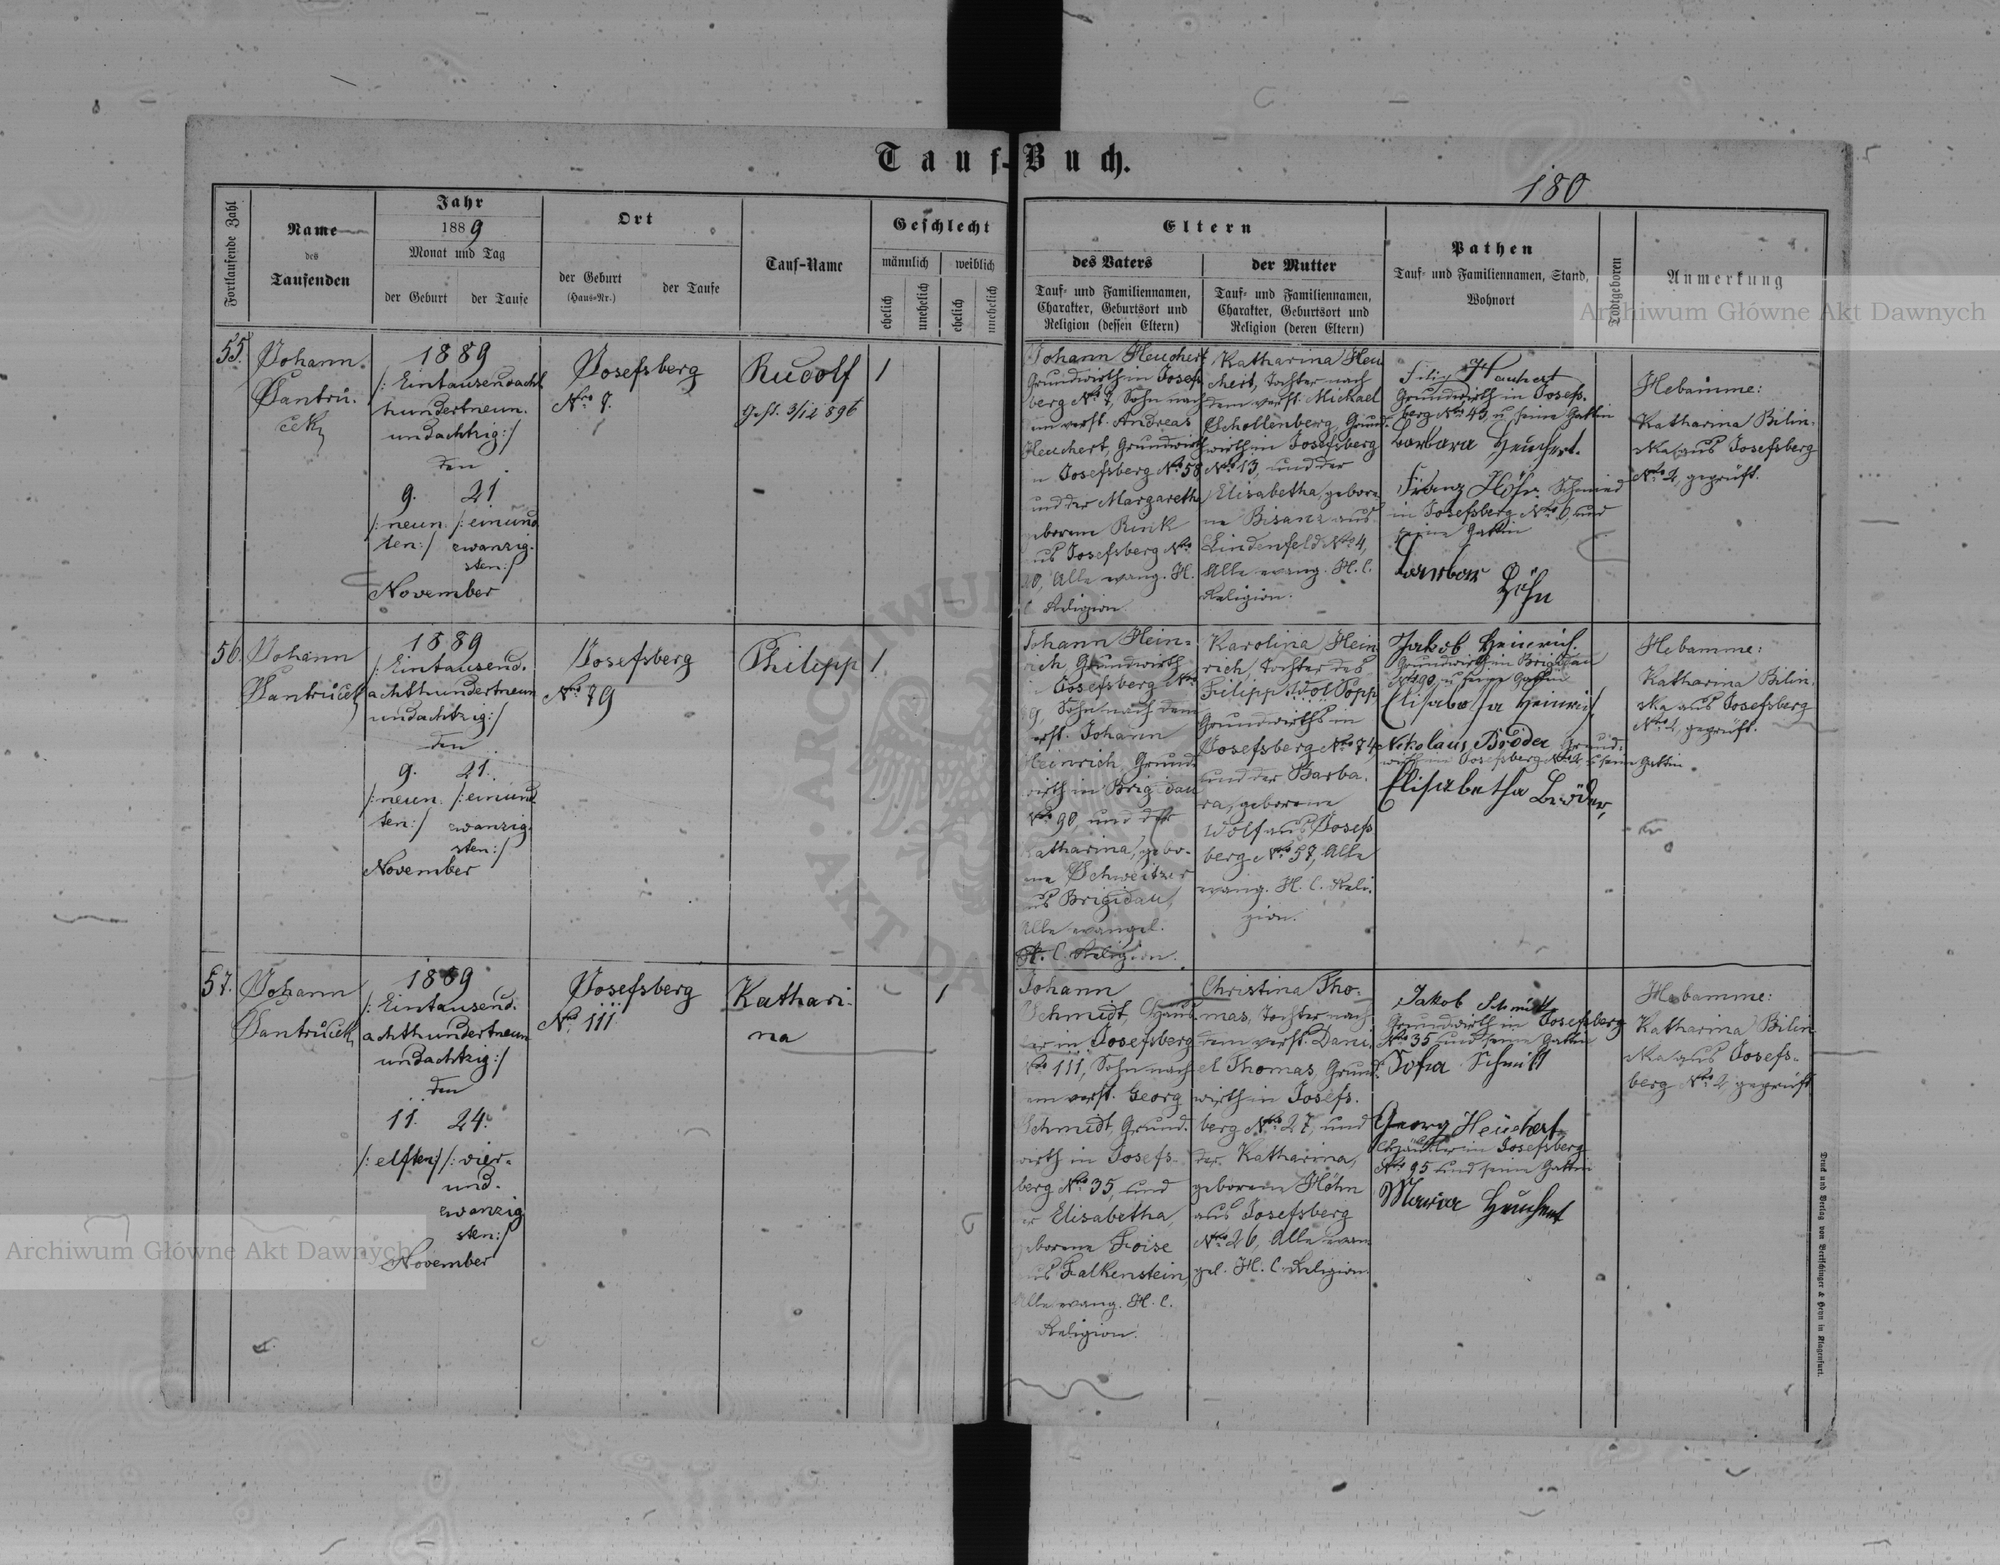 Tauf-Buch.
180
Fortlaufende Zahl
Name
des
Taufenden
Jahr
1889
Monat und Tag
der Geburt
der Taufe
Ort
der Geburt
(Haus-Nr.)
der Taufe
Tauf-Name
Geschlecht
männlich
weiblich
ehelich
unehelich
ehelich
unehelich
Eltern
des Vaters
Tauf- und Familiennamen,
Charakter, Geburtsort und
Religion (dessen Eltern)
der Mutter
Tauf- und Familiennamen,
Charakter, Geburtsort und
Religion (deren Eltern)
Pathen
Tauf- und Familiennamen, Stand,
Wohnort
Todtgeboren
Anmerkung
55.
Johann
Santru-
cek
1889
/: Eintausendacht
hundertneun-
undachtzig :/
den
9. 21
/: neun- /: einund
ten :/ zwanzig-
sten :/
November
Josefsberg
Nro 7.
Rudolf
gest. 3/12 896
1
Johann Heuchert
Grundwirth in Josefs
berg Nro 7, Sohn nach
verst. Andreas
Heuchert, Grundwirth
in Josefsberg Nro 58
und der Margaretha
geborenen Rink
aus Josefsberg Nro
Alle evang. H.
C. Religion
Katharina Heu
chert, Tochter nach
dem verst. Michael
Schollenberg, Grund-
wirth in Josefsberg
Nro 13, und der
Elisabetha, gebore-
ne Bisanz aus
Lindenfeld Nro 4,
Alle evang. H. C.
Religion.
Filip Hauchert
Grundwirth in Josefs-
berg Nro 43 u. seine Gattin
Barbara Heuchert.
Franz Höhn Schmied
in Josefsberg Nro 6, und
seine Gattin
Barbara
Höhn
Hebamme:
Katharina Bilin-
ska aus Josefsberg
Nro 2, geprüft.
56.
Johann
Santrucek
1889
/: Eintausend-
achthundertneun
undachtzig :/
den
9. 21.
/: neun- /: einund
ten :/ zwanzig-
sten :/
November
Josefsberg
Nro 79
Philipp
1
Johann Hein-
rich, Grundwirth
Josefsberg Nro
79, Sohn nach dem
verst. Johann
Heinrich Grund-
wirth in Brigidau
Nro 90, und der
Katharina, gebo-
rene Schweitzer
aus Brigidau,
Alle evangel.
H. C. Religion.
Karolina Hein
rich, Tochter des
Filipp Popp,
Grundwirths in
Josefsberg Nro 74,
und der Barba-
ra, geborenen
Wolf aus Josefs
berg Nro 57, Alle
evang. H. C. Reli-
gion.
Jakob Heinrich.
Grundwirth in Brigidau
Nro 90, u. seine Gattin
Elisabetha Heinrich
Nikolaus Bröder Grund-
wirth in Josefsberg Nro u. seine Gattin
Elisabetha Bröder,
Hebamme:
Katharina Bilin-
ska aus Josefsberg
Nro 2, geprüft.
57.
Johann
Santrucek
1889
/: Eintausend-
achthundertneun
undachtzig :/
den
11. 24.
/: elften :/ /: vier-
und-
zwanzig
sten :/
November
Josefsberg
Nro 111
Kathari-
na
1
Johann
Schmidt,
in Josefsberg
Nro 111, Sohn nach
dem verst. Georg
Schmidt, Grund-
wirth in Josefs-
berg Nro 35, und
der Elisabetha,
geborene Loise
aus Falkenstein,
Alle evang. H. C.
Religion.
Christina Tho-
mas, Tochter nach
dem verst. Dani-
el Thomas, Grund-
wirth in Josefs-
berg Nro 27, und
der Katharina,
geborenen Höhn
aus Josefsberg
Nro 26, Alle evan
gel. H. C. Religion.
Jakob Schmidt
Grundwirth in Josefsberg
Nro 35 und seine Gattin
Sofia Schmitt
Georg Heuchert
Häusler in Josefsberg
Nro 95 und seine Gattin
Maria Heuchert
Hebamme:
Katharina Bilin
ska aus Josefs-
berg Nro 2, geprüft
Druck und Verlag von Bertschinger & Heyn in Klagenfurt.
Archiwum Główne Akt Dawnych
Archiwum Główne Akt Dawnych
ARCHIWUM
AKT DAWNYCH